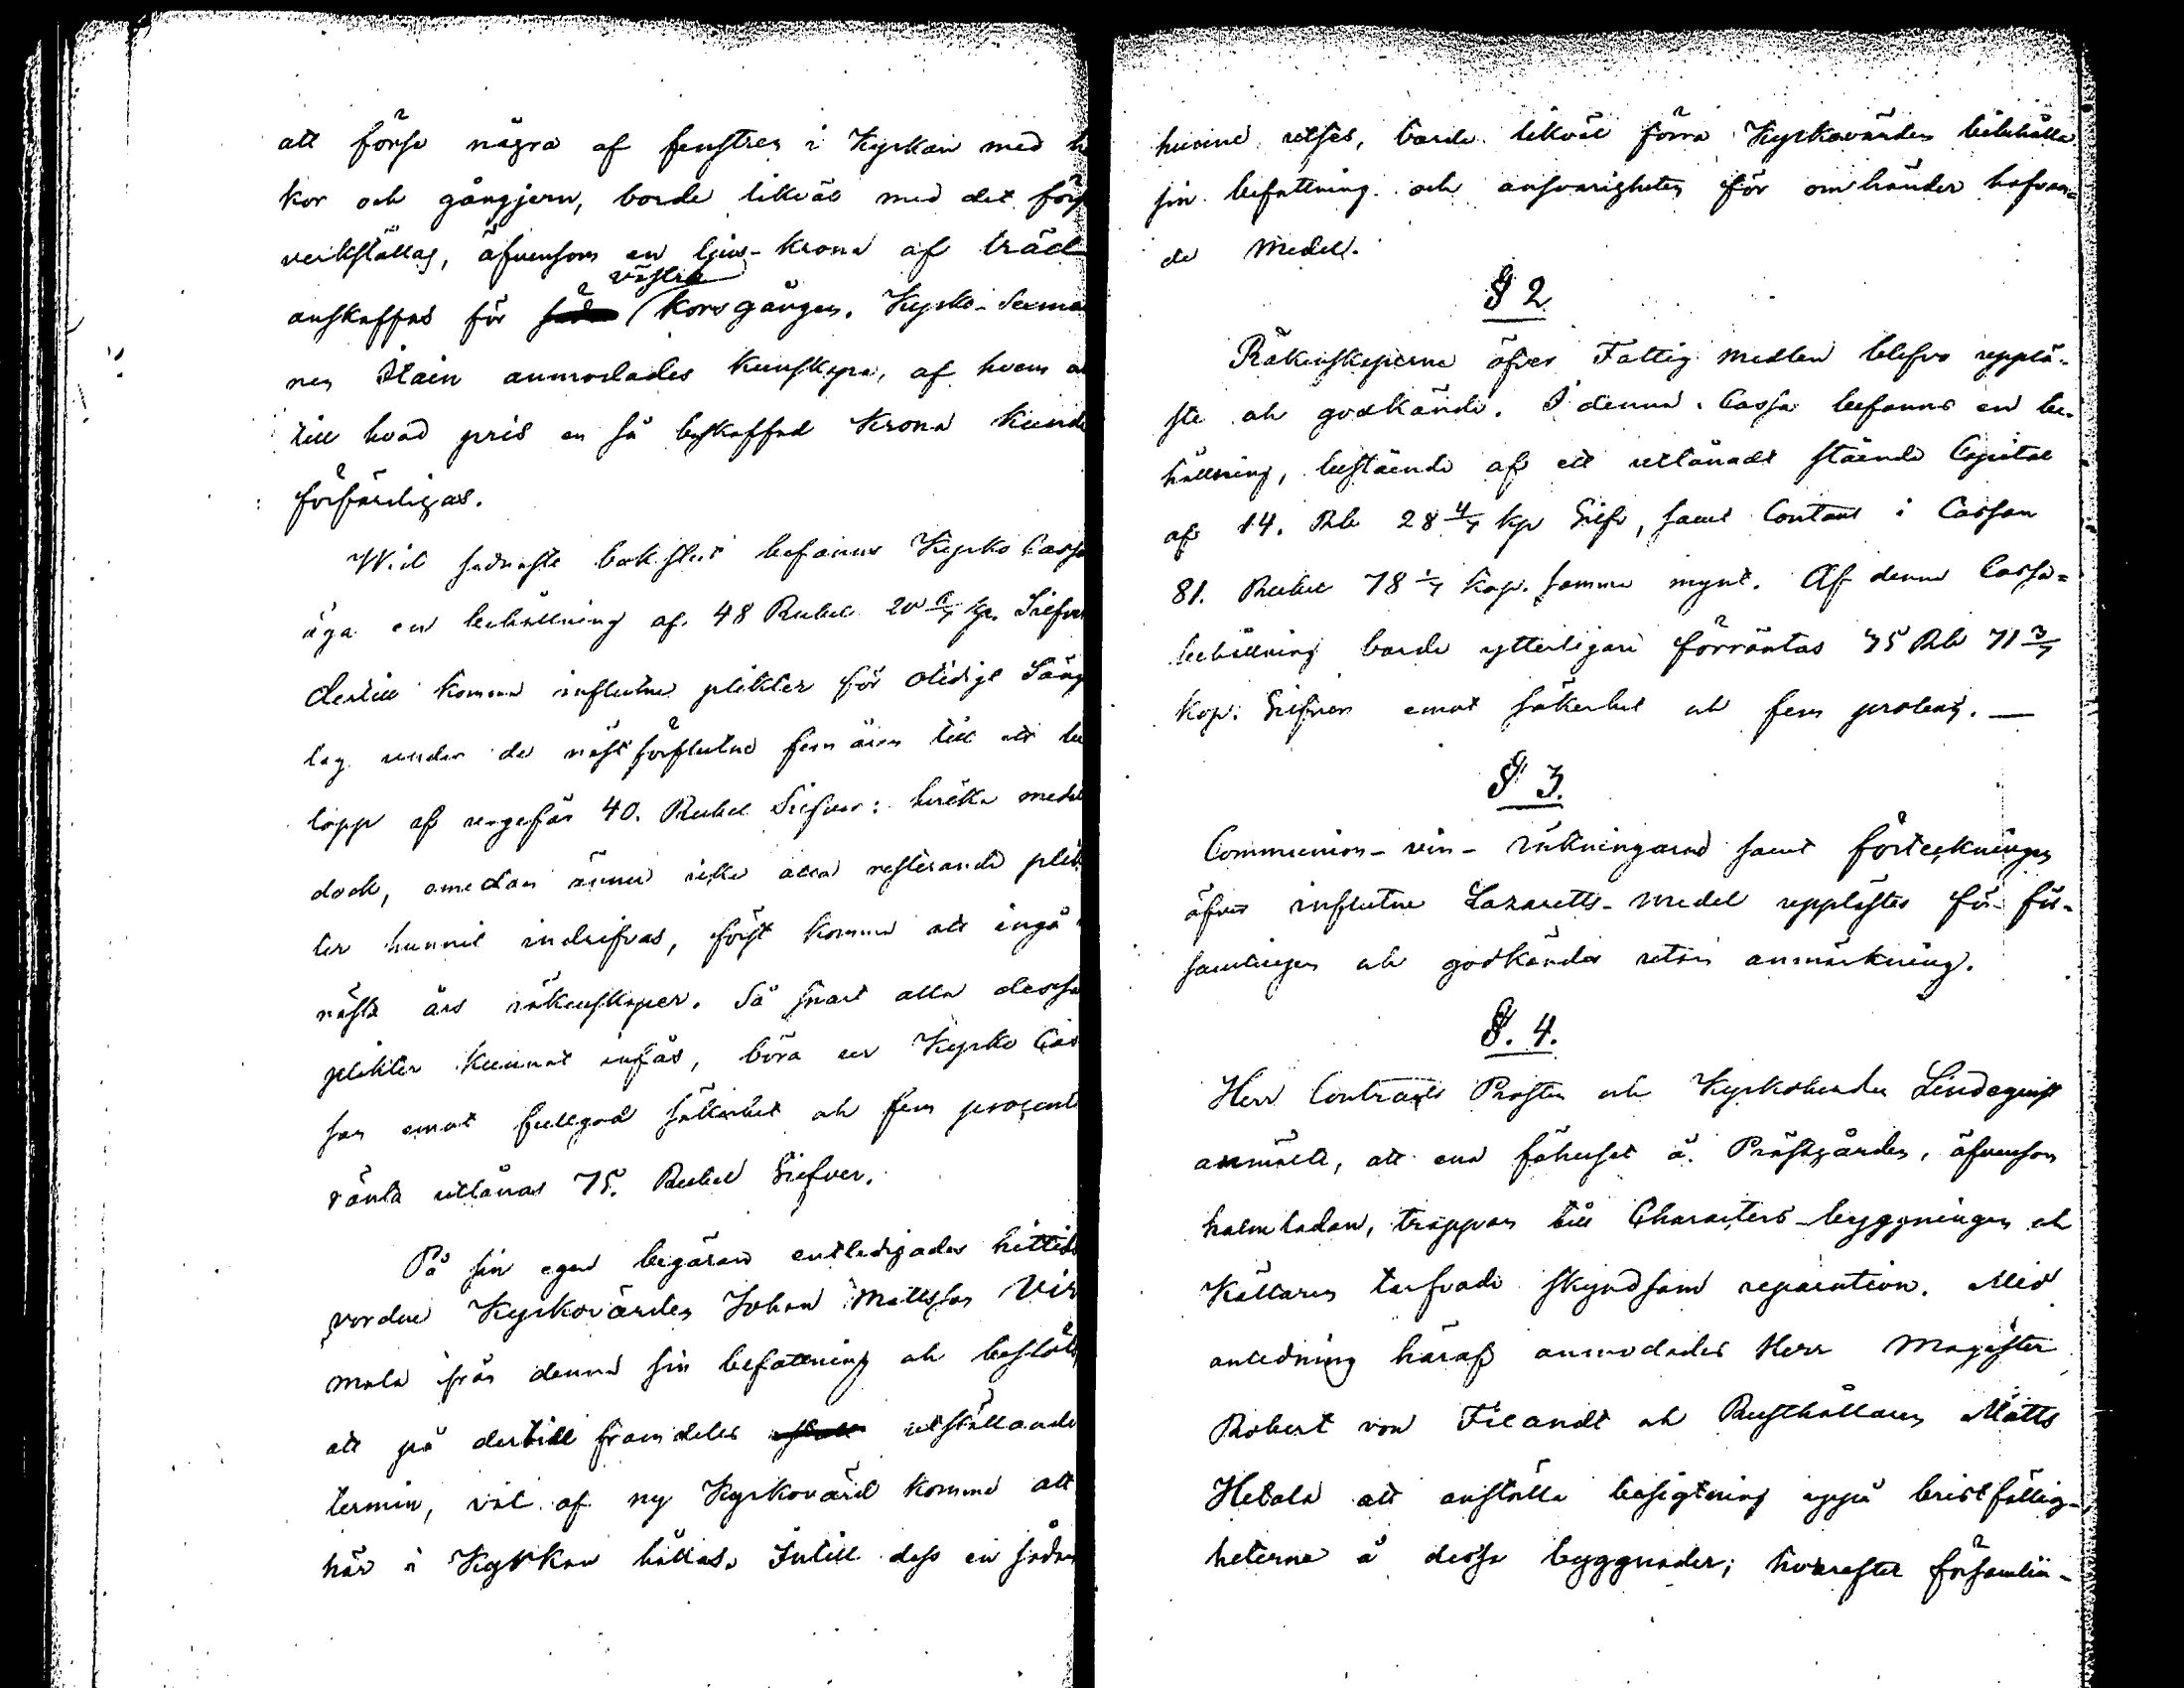 att förse några af fenstren i Kyrkan med h
kor och gångjern, borde likväl med det förs
verkställas, äfvensom en ljus-krona af träd
västra
anskaffas för korsgången. Kyrko-Sexma
nen Stain anmodades kunskapa, af hvem o
till hvad pris en så beskaffad Krona kunde
förfärdigas.
Wid sednaste bokslut befanns Kyrko Cassa
äga en behållning af 48 Rubel 20 6/7 kp. Silfver
dertill komma influtne plikter för otidigt Säng
lag under de näst förflutne fem åren till ett be
lopp af ungefär 40. Rubel Silfver: hvilka medel
dock, emedan ännu icke alla resterande plik
ter hunnit indrifvas, först komma att ingå i
nästa års räkenskaper. Så snart alla dessa
plikter kunnat infås, böra ur Kyrko Cas
san emot fullgod säkerhet och fem procent
ränta utlånas 75. Rubel Silfver.
På sin egen begäran entledigades hittils
vordne Kyrkovärden Johan Mattsson Vir
mala ifrån denna sin befattning och beslöts
att på dertill framdeles utställande
termin, val af ny Kyrkovärd komma att
här i Kyrkan hållas. Intill dess en sådan
hunne utses, borde likväl förra Kyrkovärden bibehålla
sin befattning och ansvarigheten för om händer hafvan=
de Medel.
§ 2
Räkenskaperne öfver Fattig medlen blefvo upplä-
ste och godkände. I denna Cassa befanns en be-
hållning, bestående af ett utlånadt stående Capital
af 14. Rb 28 4/7 kp Silfv, samt Contant i Cassan
81. Rubel 78 1/7 kop. samma mynt. Af denna Cassa=
behållning borde ytterligare förräntas 75 Rb 71 3/7
kop. Silfver emot säkerhet och fem procent. —
§ 3.
Communion-vin-räkningarne samt förteckningen
öfver influtne Lazaretts-medel upplästes för för-
samlingen och godkändes utan anmärkning.
§. 4.
Herr Contracts Prosten och Kyrkoherden Lindeqvist
anmälte, att ena fähuset å Prästgården, äfvensom
halmladan, trappan till Characters-byggningen och
Källaren tarfvade skyndsam reparation. Med
anledning häraf anmodades Herr Magister
Robert von Fieandt och Rusthållaren Matts
Hetala att anställa besigtning uppå bristfällig-
heterne å dessa byggnader; hvarefter församlin-